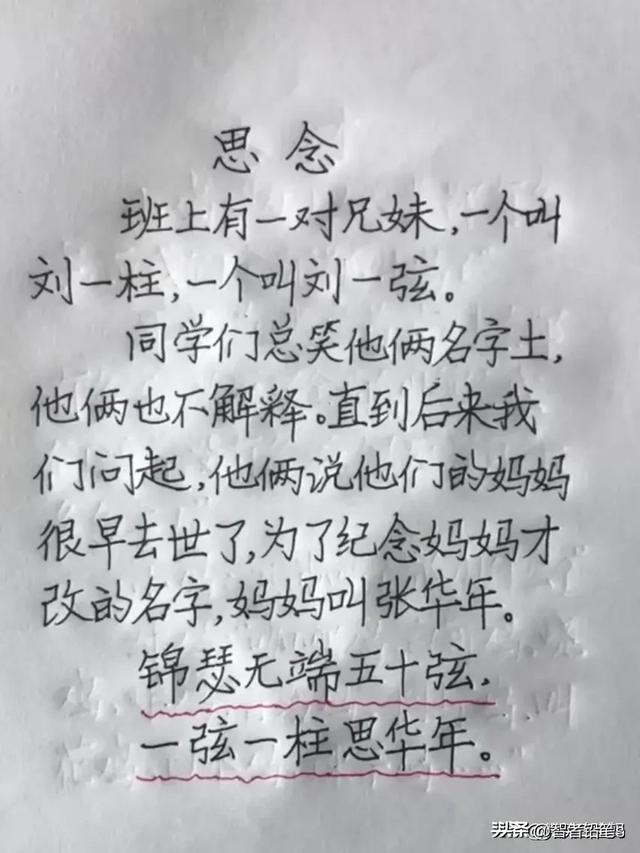 思念
班上有一对兄妹,一个叫
刘一柱,一个叫刘一弦。
同学们总笑他俩名字土,
他俩也不解释。直到后来我
们问起,他俩说他们的妈妈
很早去世了,为了纪念妈妈才
改的名字,妈妈叫张华年。
锦瑟无端五十弦,
一弦一柱思华年。
头条@智者铅笔